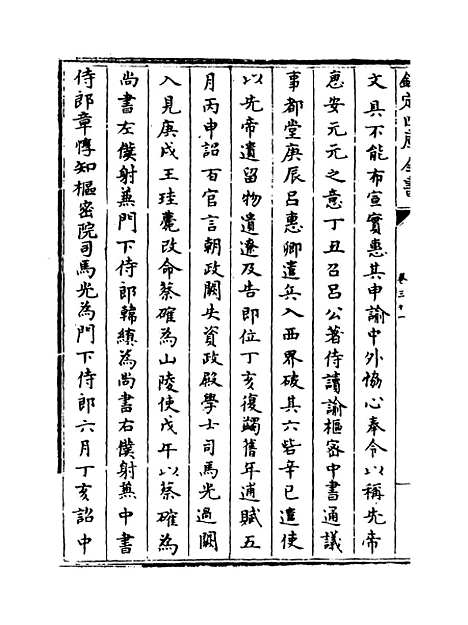 欽定四庫全書
卷三十一
文具不能布宣實惠其申諭中外協心奉令以稱先帝
惠安元元之意丁丑召吕公著侍讀諭樞密中書通議
事都堂庚辰吕惠卿遣兵入西界破其六砦辛已遣使
以先帝遺留物遺遼及告即位丁亥復蠲舊年逋賦五
月丙申詔百官言朝政闕失資政殿學士司馬光過闕
入見庚戌王珪薨改命蔡確為山陵使戊午以蔡確為
尚書左僕射兼門下侍郎韓縝為尚書右僕射兼中書
侍郎章惇知樞密院司馬光為門下侍郎六月丁亥詔中